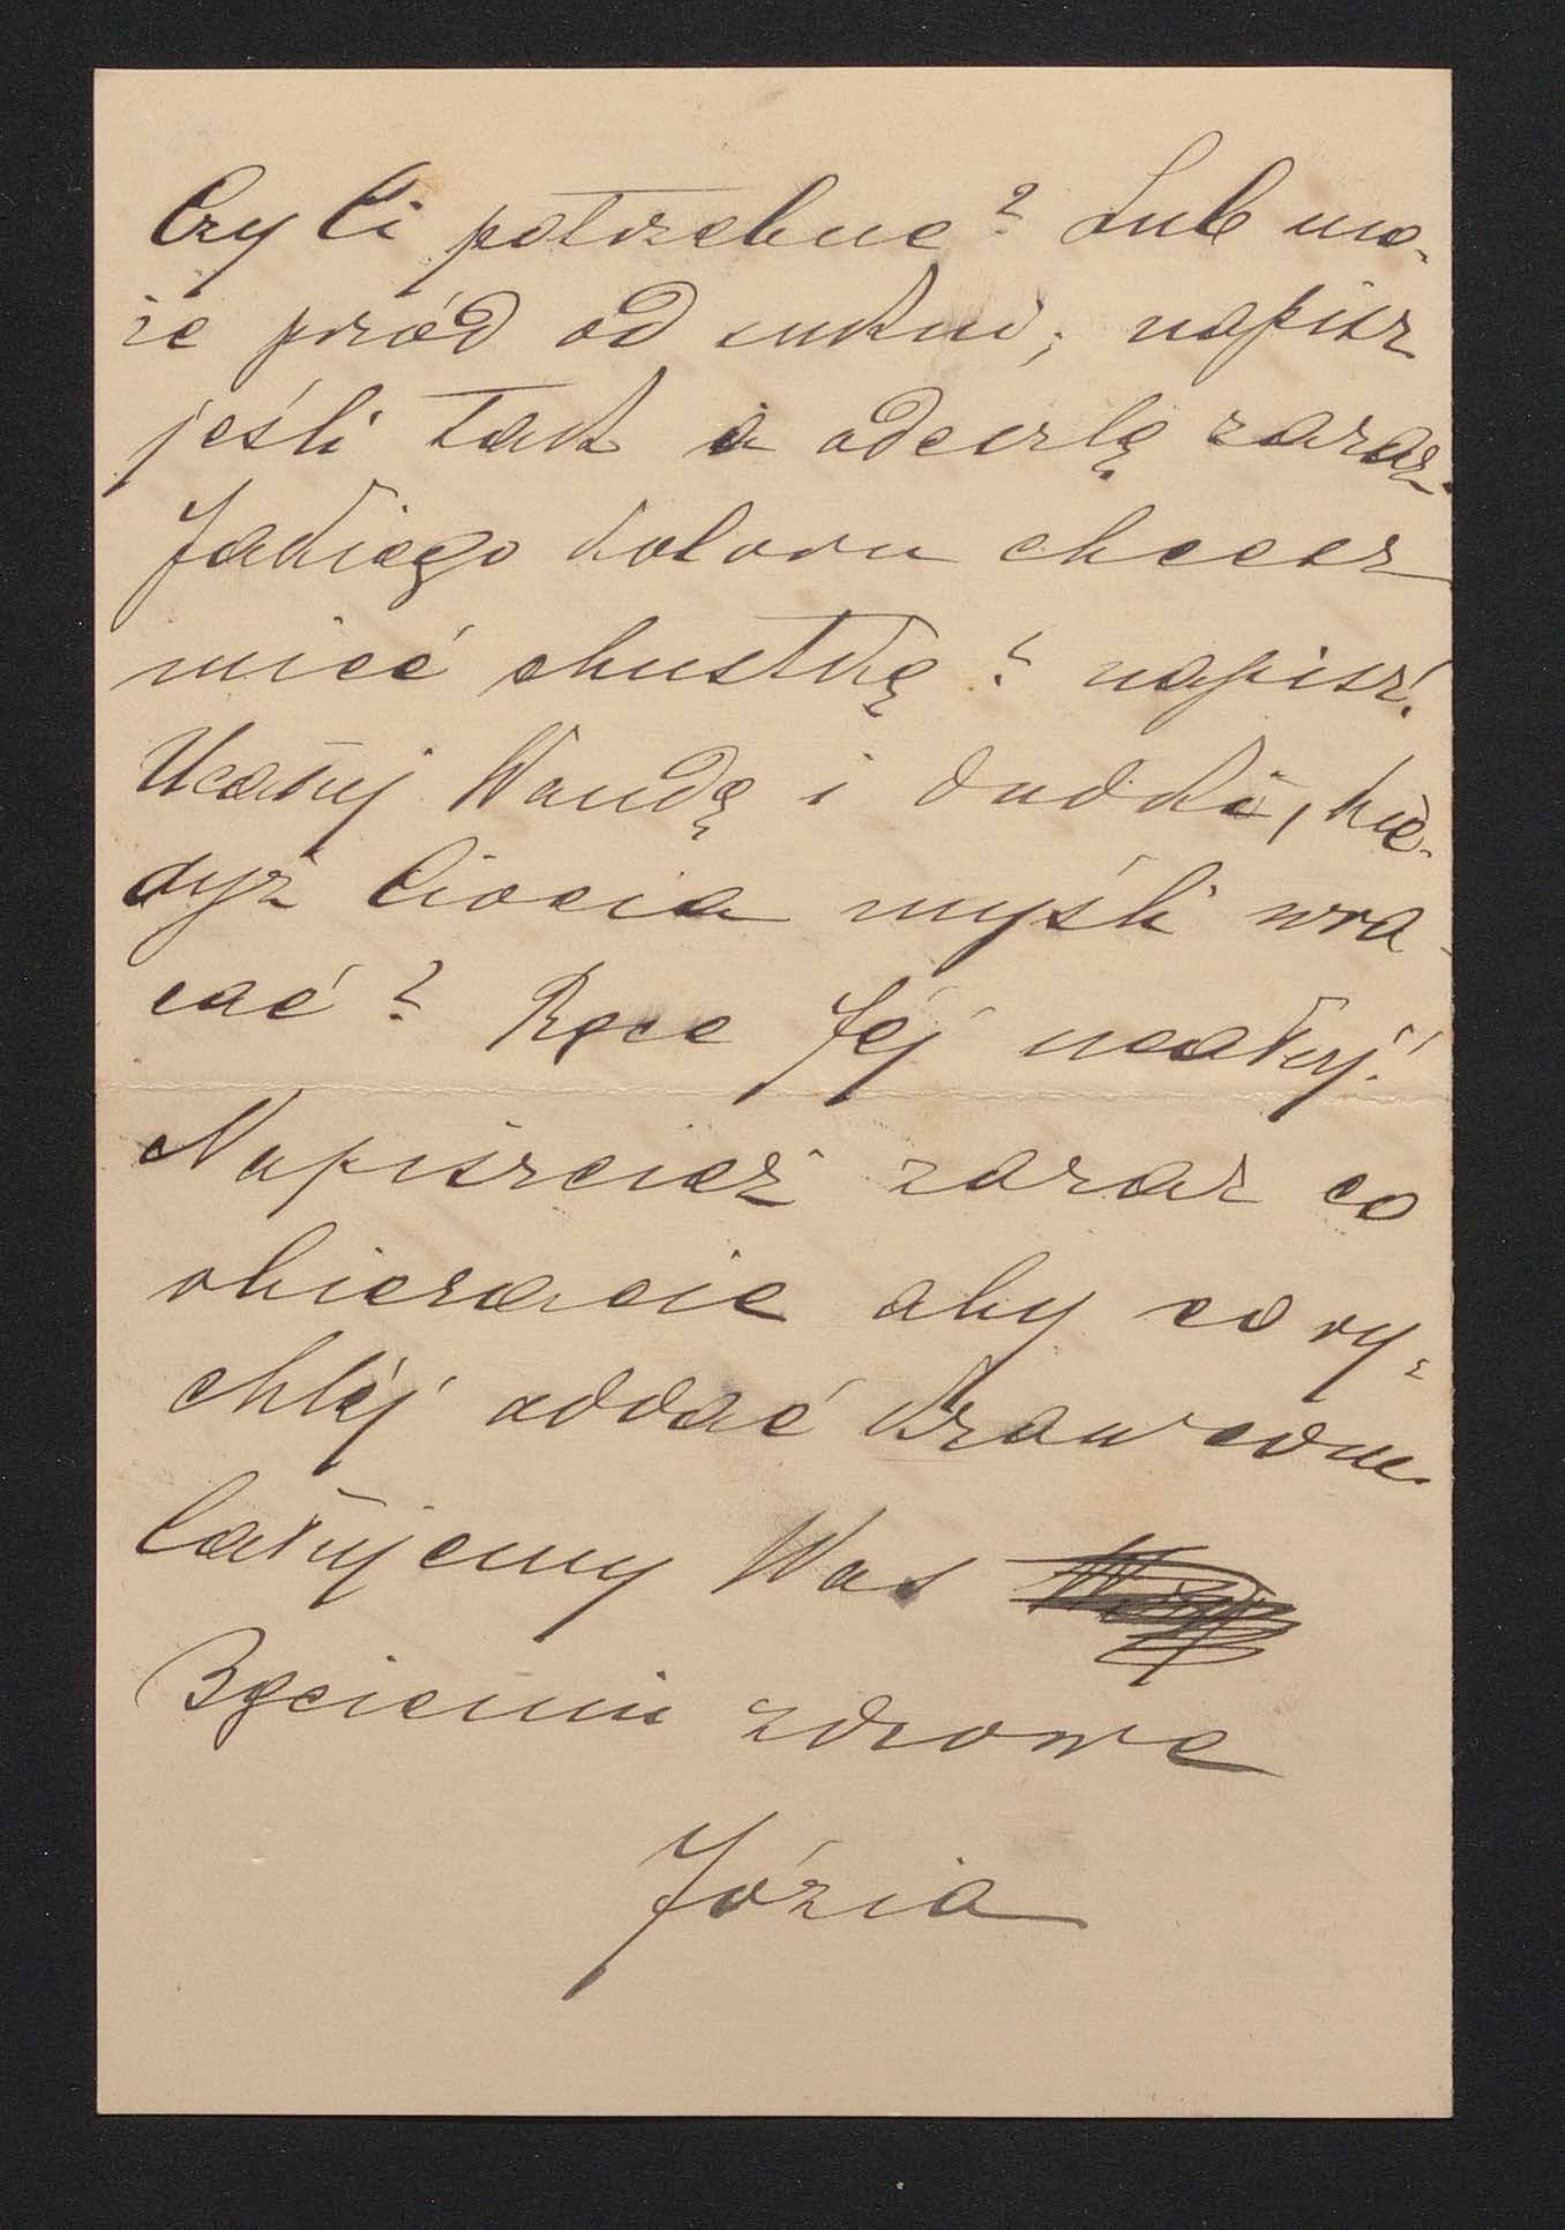 Czy Ci potrzebne? Lub mo-
że przód od sukni, napisz
jeśli tak a odeszlę zaraz.
Jakiego koloru chcesz
mieć chustkę? napisz!
Ucałuj Wandę i dudki, kie-
dyż Ciocia myśli wra-
cać? Ręce Jéj ucałuj!
Napiszcież zaraz co
obieracie aby co ry-
chléj oddać krawcowe
Całujemy Was
Bądźcie zdrowe
Józia